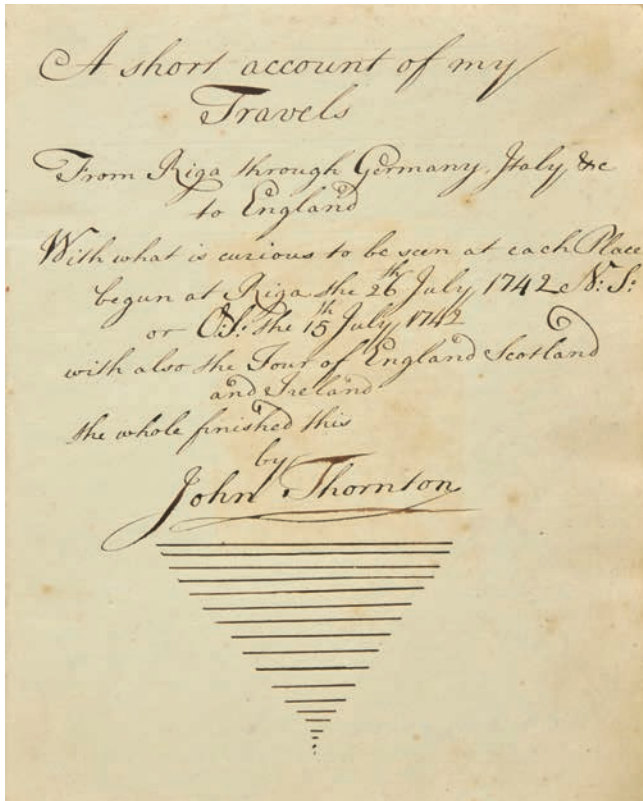 A short account of my
Travels
From Riga through Germany, Italy, &c
to England
With what is curious to be seen at each Place
begun at Riga the 26th July 1742 N: S:
or O: S: the 15th July 1742
with also the Tour of England Scotland
and Ireland
the whole finished this
by
John Thornton